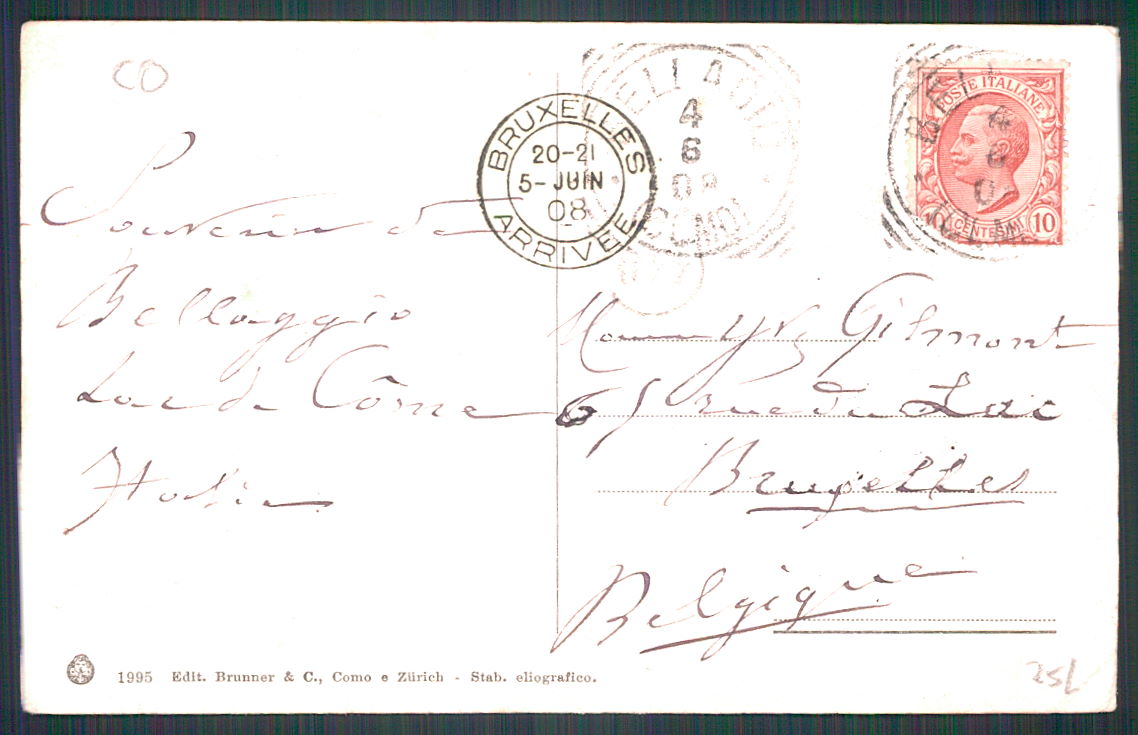 CO
BELLAGIO
4
6
08
(COMO)
BRUXELLES
20-21
5-JUIN
08
ARRIVÉE
POSTE ITALIANE
CENTESIMI 10
Souvenir de
Bellaggio
Lac de Côme
Italie
Gilmont
65 rue du Lac
Bruxelles
Belgique
1995 Edit. Brunner & C., Como e Zürich - Stab. eliografico.